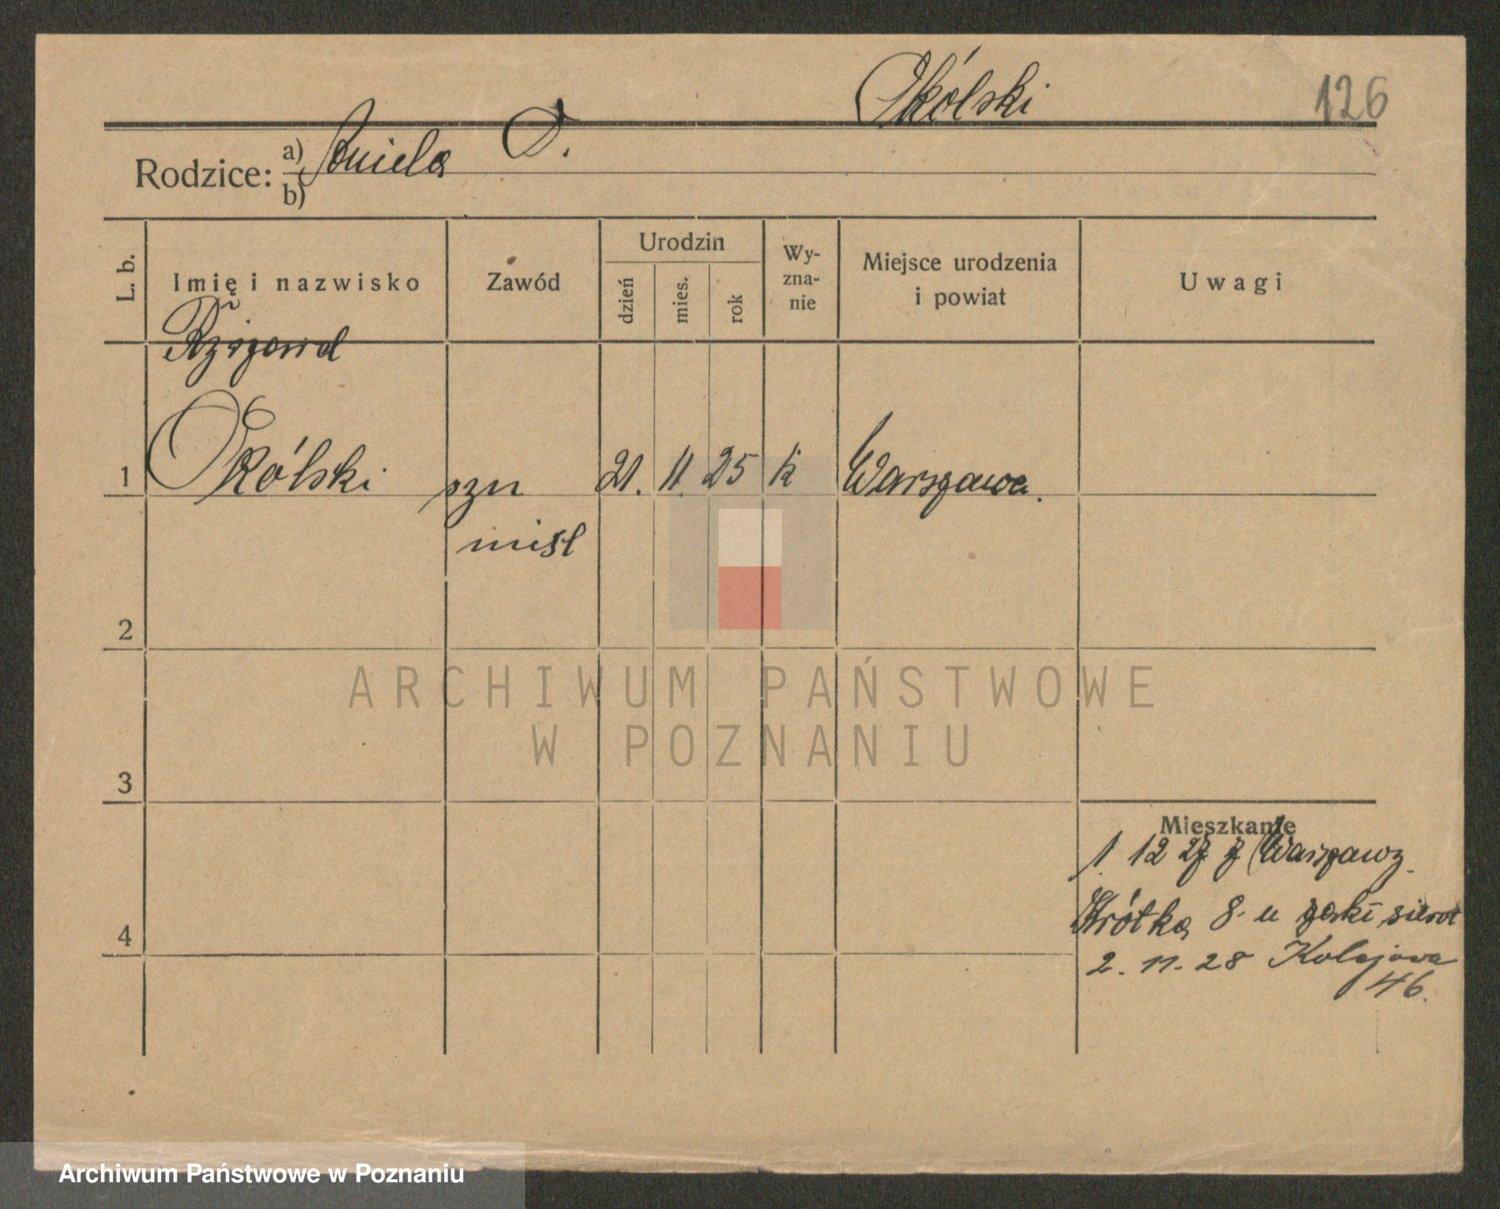 Okólski
126
Rodzice: a) Aniela O.
b)
L. b.
Imię i nazwisko
Zawód
Urodzin
dzień
mies.
rok
Wy-
zna-
nie
Miejsce urodzenia
i powiat
Uwagi
1 Okólski szu 21. 11. 25 k Warszawa.
2
3
4
Mieszkanie
1 12 27 z Warszawy.
Krótka 8.
2. 11. 28 Kolejowa
46.
ARCHIWUM PAŃSTWOWE
W POZNANIU
Archiwum Państwowe w Poznaniu